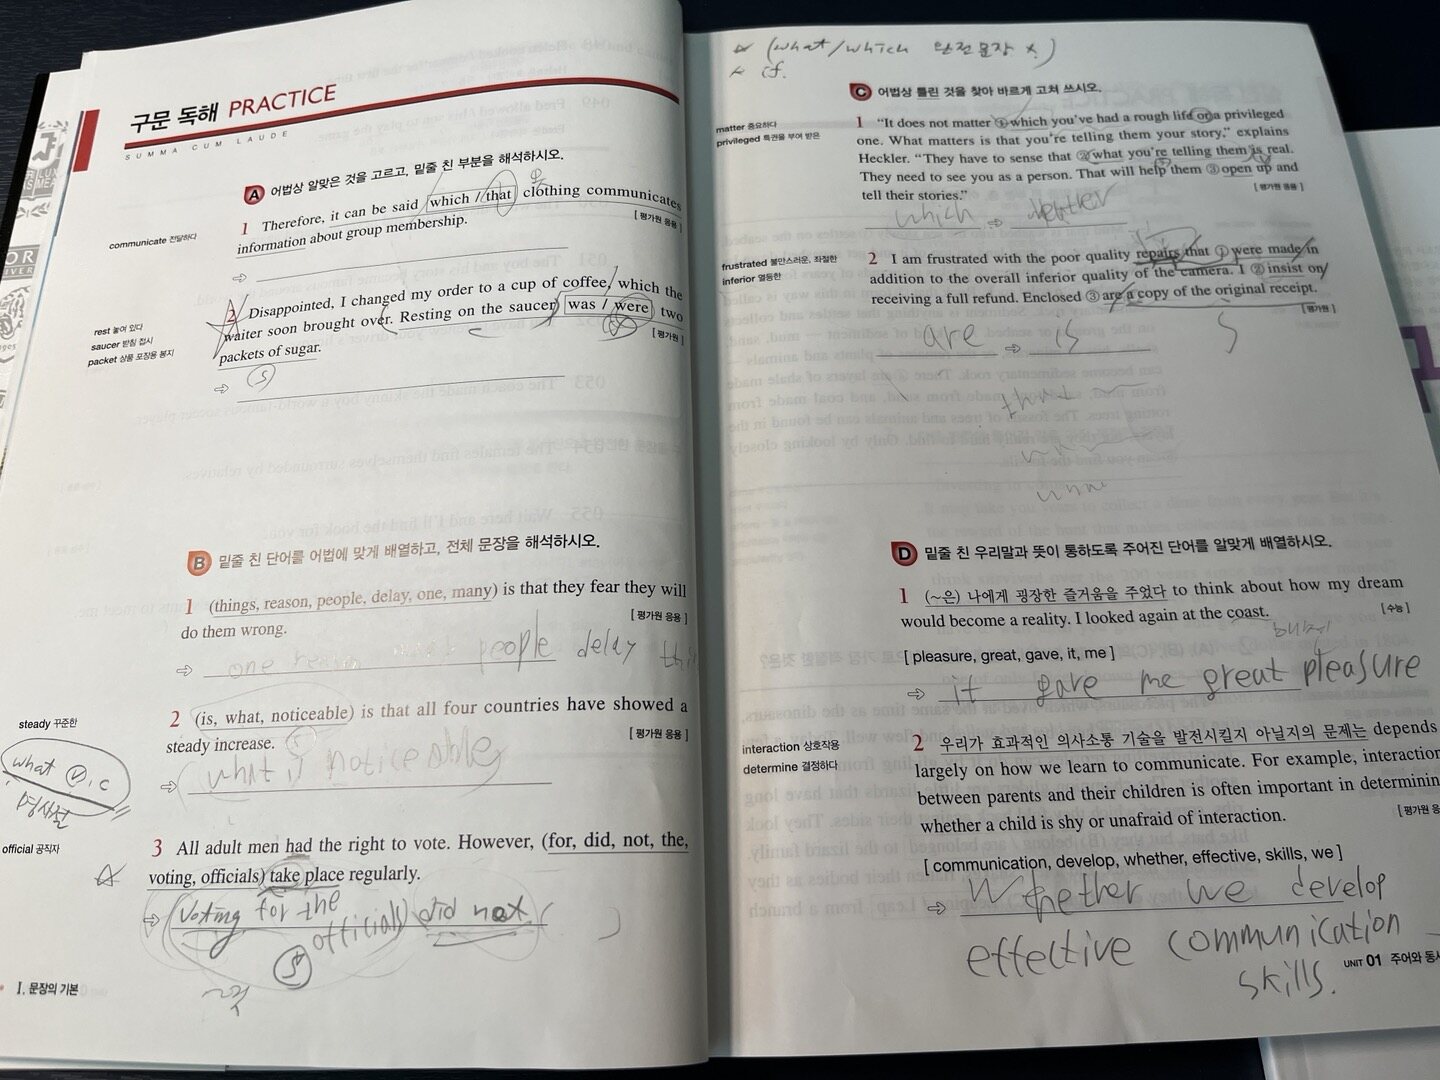 구문 독해 PRACTICE
SUMMA CUM LAUDE
A 어법상 알맞은 것을 고르고, 밑줄 친 부분을 해석하시오.
1 Therefore, it can be said which / that clothing communicates
information about group membership.
[ 평가원 응용 ]
communicate 전달하다
⇨
2 Disappointed, I changed my order to a cup of coffee, which the
waiter soon brought over. Resting on the saucer was / were two
packets of sugar.
[ 평가원 ]
rest 놓여 있다
saucer 받침 접시
packet 상품 포장용 봉지
S
⇨
B 밑줄 친 단어를 어법에 맞게 배열하고, 전체 문장을 해석하시오.
1 (things, reason, people, delay, one, many) is that they fear they will
do them wrong.
[ 평가원 응용 ]
⇨ one reason many people delay
2 (is, what, noticeable) is that all four countries have showed a
steady increase.
[ 평가원 응용 ]
steady 꾸준한
⇨ what is noticeable
what V, C
명사절
3 All adult men had the right to vote. However, (for, did, not, the,
voting, officials) take place regularly.
official 공직자
⇨ (voting for the
officials) did not ( )
S
I. 문장의 기본
(what/which 완전문장 X)
if.
C 어법상 틀린 것을 찾아 바르게 고쳐 쓰시오.
matter 중요하다
privileged 특권을 부여 받은
1 “It does not matter ① which you’ve had a rough life or a privileged
one. What matters is that you’re telling them your story,” explains
Heckler. “They have to sense that ② what you’re telling them is real.
They need to see you as a person. That will help them ③ open up and
tell their stories.”
[ 평가원 응용 ]
which ⇨
frustrated 불만스러운, 좌절한
inferior 열등한
2 I am frustrated with the poor quality repairs that ① were made in
addition to the overall inferior quality of the camera. I ② insist on
receiving a full refund. Enclosed ③ are a copy of the original receipt.
[ 평가원 ]
are ⇨ is
S
that
D 밑줄 친 우리말과 뜻이 통하도록 주어진 단어를 알맞게 배열하시오.
1 (~은) 나에게 굉장한 즐거움을 주었다 to think about how my dream
would become a reality. I looked again at the coast.
[ 수능 ]
[ pleasure, great, gave, it, me ]
⇨ it gave me great pleasure
interaction 상호작용
determine 결정하다
2 우리가 효과적인 의사소통 기술을 발전시킬지 아닐지의 문제는 depends
largely on how we learn to communicate. For example, interaction
between parents and their children is often important in determinin
whether a child is shy or unafraid of interaction.
[ 평가원
[ communication, develop, whether, effective, skills, we ]
⇨ Whether we develop
effective communication
skills.
UNIT 01 주어와 동사